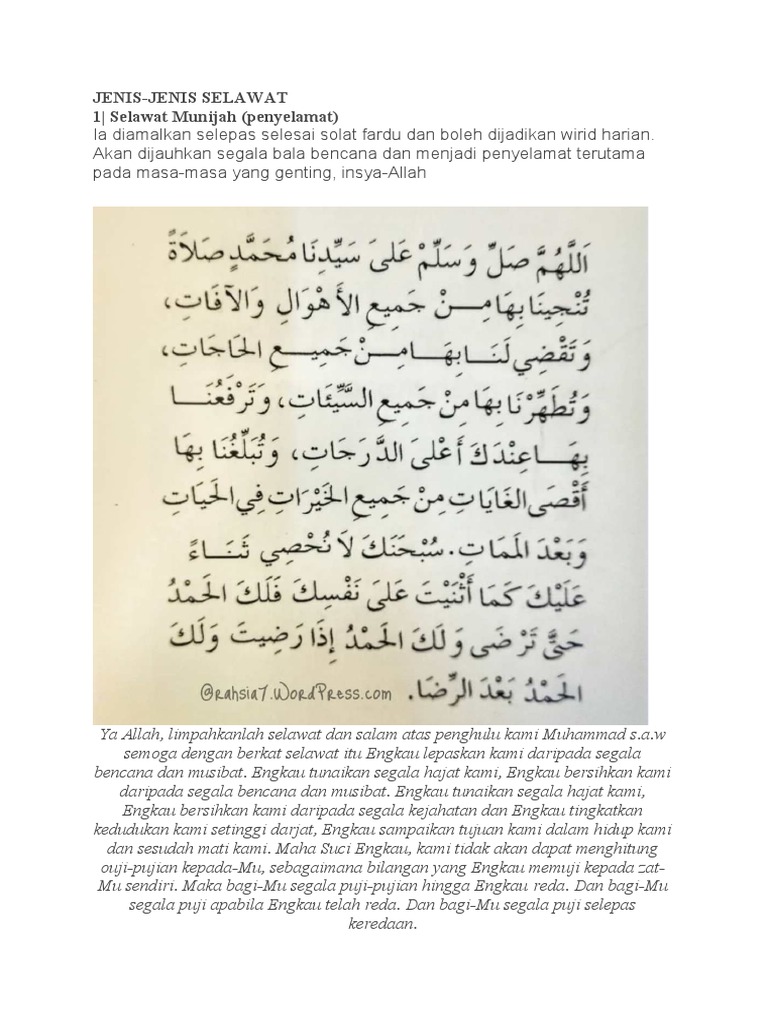 JENIS-JENIS SELAWAT
1| Selawat Munijah (penyelamat)
Ia diamalkan selepas selesai solat fardu dan boleh dijadikan wirid harian.
Akan dijauhkan segala bala bencana dan menjadi penyelamat terutama
pada masa-masa yang genting, insya-Allah
اَللَّهُمَّ صَلِّ وَسَلِّمْ عَلىَ سَيِّدِنَا مُحَمَّدٍ صَلاَةً
تُنْجِينَا بِهَا مِنْ جَمِيعِ الأَهْوَالِ وَالآفَاتِ،
وَتَقْضِي لَنَا بِهَا مِنْ جَمِيعِ الحَاجَاتِ،
وَتُطَهِّرْنَا بِهَا مِنْ جَمِيعِ السَّيِّئَاتِ، وَتَرْفَعُنَا
بِهَا عِنْدَكَ أَعْلىَ الدَّرَجَاتِ، وَتُبَلِّغُنَا بِهَا
أَقْصَى الغَايَاتِ مِنْ جَمِيعِ الخَيْرَاتِ فِي الحَيَاتِ
وَبَعْدَ المَمَاتِ. سُبْحَنَكَ لاَ نُحْصِي ثَنَاءً
عَلَيْكَ كَمَا أَثْنَيْتَ عَلىَ نَفْسِكَ فَلَكَ الحَمْدُ
حَتىَّ تَرْضَى وَلَكَ الحَمْدُ إِذَا رَضِيتَ وَلَكَ
الحَمْدُ بَعْدَ الرِّضَا.
@rahsia7.WordPress.com
Ya Allah, limpahkanlah selawat dan salam atas penghulu kami Muhammad s.a.w
semoga dengan berkat selawat itu Engkau lepaskan kami daripada segala
bencana dan musibat. Engkau tunaikan segala hajat kami, Engkau bersihkan kami
daripada segala bencana dan musibat. Engkau tunaikan segala hajat kami,
Engkau bersihkan kami daripada segala kejahatan dan Engkau tingkatkan
kedudukan kami setinggi darjat, Engkau sampaikan tujuan kami dalam hidup kami
dan sesudah mati kami. Maha Suci Engkau, kami tidak akan dapat menghitung
ouji-pujian kepada-Mu, sebagaimana bilangan yang Engkau memuji kepada zat-
Mu sendiri. Maka bagi-Mu segala puji-pujian hingga Engkau reda. Dan bagi-Mu
segala puji apabila Engkau telah reda. Dan bagi-Mu segala puji selepas
keredaan.